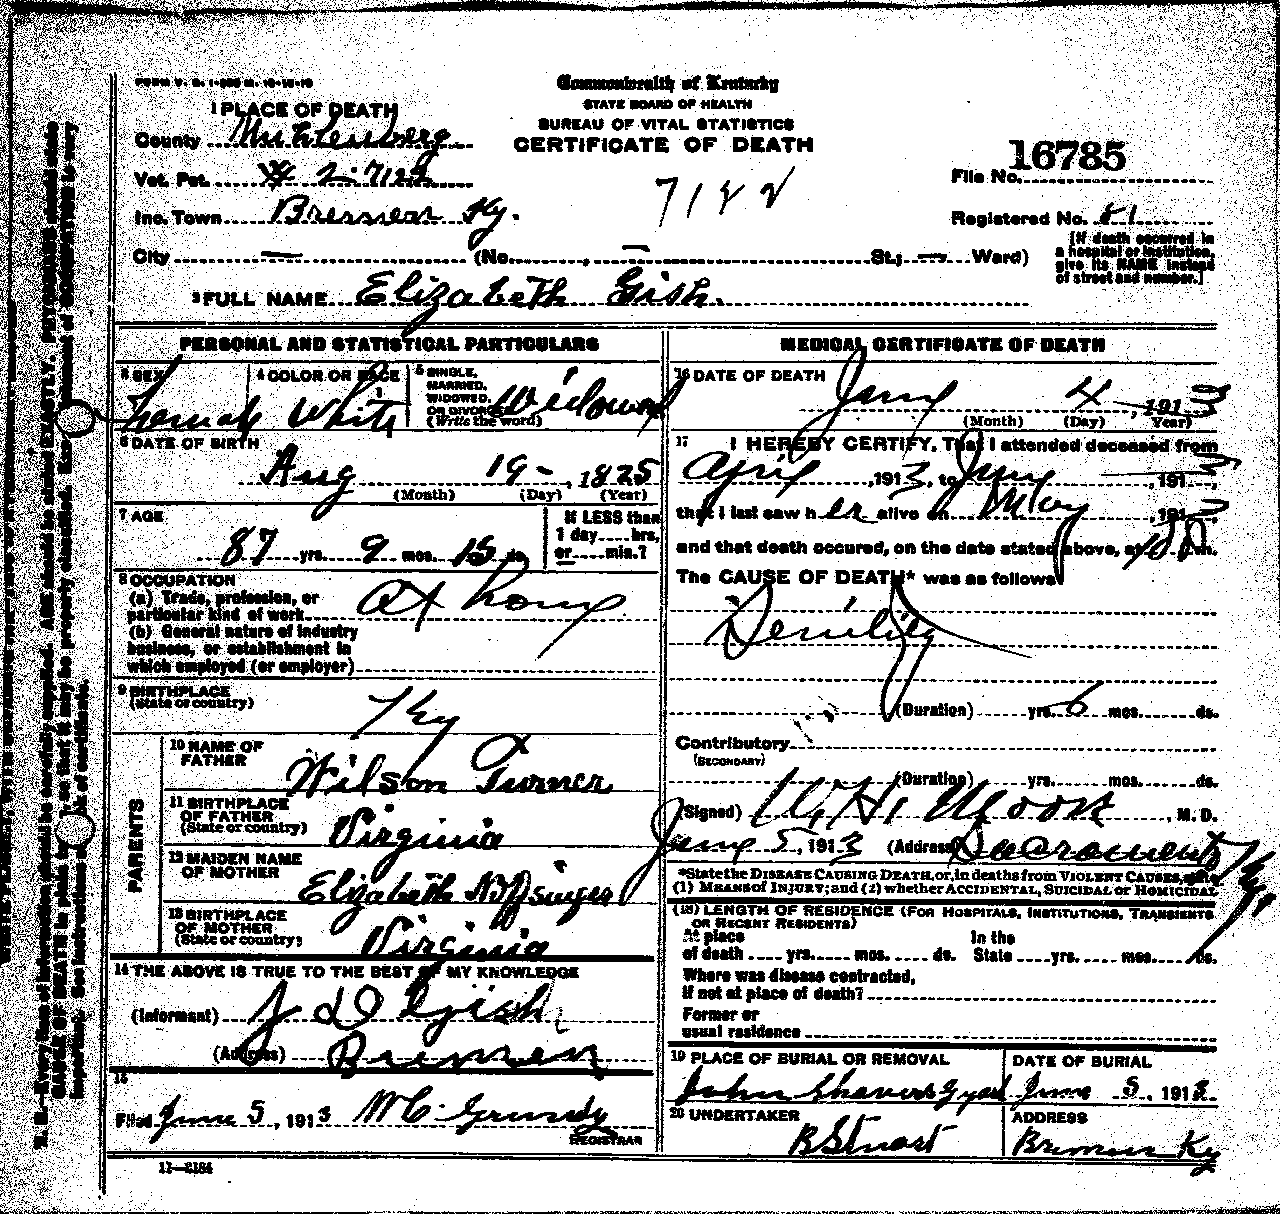 FORM V. S. 1
Commonwealth of Kentucky
STATE BOARD OF HEALTH
BUREAU OF VITAL STATISTICS
CERTIFICATE OF DEATH
1 PLACE OF DEATH
County Muhlenberg
Vot. Pct. # 2. 7122
Inc. Town Bremen Ky.
City — (No. , — St.; — Ward)
16785
File No.
Registered No. 81
[If death occurred in
a hospital or institution,
give its NAME instead
of street and number.]
2 FULL NAME Elizabeth Gish.
PERSONAL AND STATISTICAL PARTICULARS
3 SEX Female
4 COLOR OR RACE White
5 SINGLE,
MARRIED,
WIDOWED,
OR DIVORCED Widowed
(Write the word)
6 DATE OF BIRTH
Aug 19 - , 1825
(Month) (Day) (Year)
7 AGE
87 yrs. 9 mos. 15 ds.
If LESS than
1 day hrs.
or min.?
8 OCCUPATION
(a) Trade, profession, or
particular kind of work At home
(b) General nature of industry
business, or establishment in
which employed (or employer)
9 BIRTHPLACE
(State or country) Ky
PARENTS
10 NAME OF
FATHER Wilson Turner
11 BIRTHPLACE
OF FATHER
(State or country) Virginia
12 MAIDEN NAME
OF MOTHER Elizabeth
13 BIRTHPLACE
OF MOTHER
(State or country) Virginia
14 THE ABOVE IS TRUE TO THE BEST OF MY KNOWLEDGE
(Informant) J D Gish
(Address) Bremen
15
Filed June 5, 1913 W C. Grundy
REGISTRAR
11—2184
MEDICAL CERTIFICATE OF DEATH
16 DATE OF DEATH
June 4, 1913
(Month) (Day) Year)
17 I HEREBY CERTIFY, That I attended deceased from
April , 1913, to June , 1913,
that I last saw her alive on May , 1913
and that death occured, on the date stated above, at m.
The CAUSE OF DEATH* was as follows:
Senility
(Duration) yrs. 6 mos. ds.
Contributory
(SECONDARY)
(Duration) yrs. mos. ds.
(Signed) W. H. Moore , M. D.
June 5, 1913 (Address) Sacramento Ky.
*State the DISEASE CAUSING DEATH, or, in deaths from VIOLENT CAUSES, state
(1) MEANS of INJURY; and (2) whether ACCIDENTAL, SUICIDAL or HOMICIDAL
(18) LENGTH OF RESIDENCE (FOR HOSPITALS, INSTITUTIONS, TRANSIENTS
OR RECENT RESIDENTS)
At place In the
of death yrs. mos. ds. State yrs. mos. ds.
Where was disease contracted,
if not at place of death?
Former or
usual residence
19 PLACE OF BURIAL OR REMOVAL
John Shavers G yard
DATE OF BURIAL
June 5, 1913
20 UNDERTAKER
B Stuart
ADDRESS
Bremen Ky